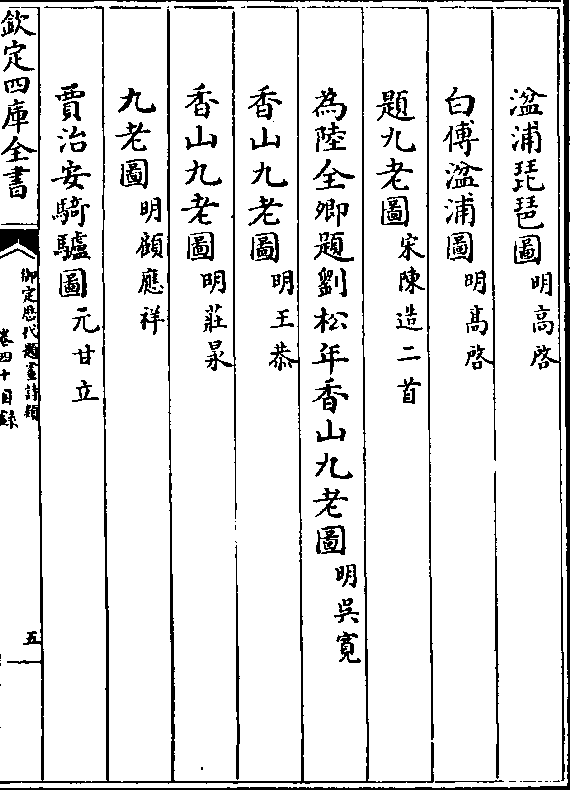 湓浦琵琶圖明高啓
白傅湓浦圖明高啓
題九老圖宋陳造二首
為陸全卿題劉松年香山九老圖明吳寬
香山九老圖明王恭
香山九老圖明莊㫤
九老圖明顧應祥
賈治安騎驢圖元甘立
欽定四庫全書
御定歴代題畫詩類
卷四十目録
五